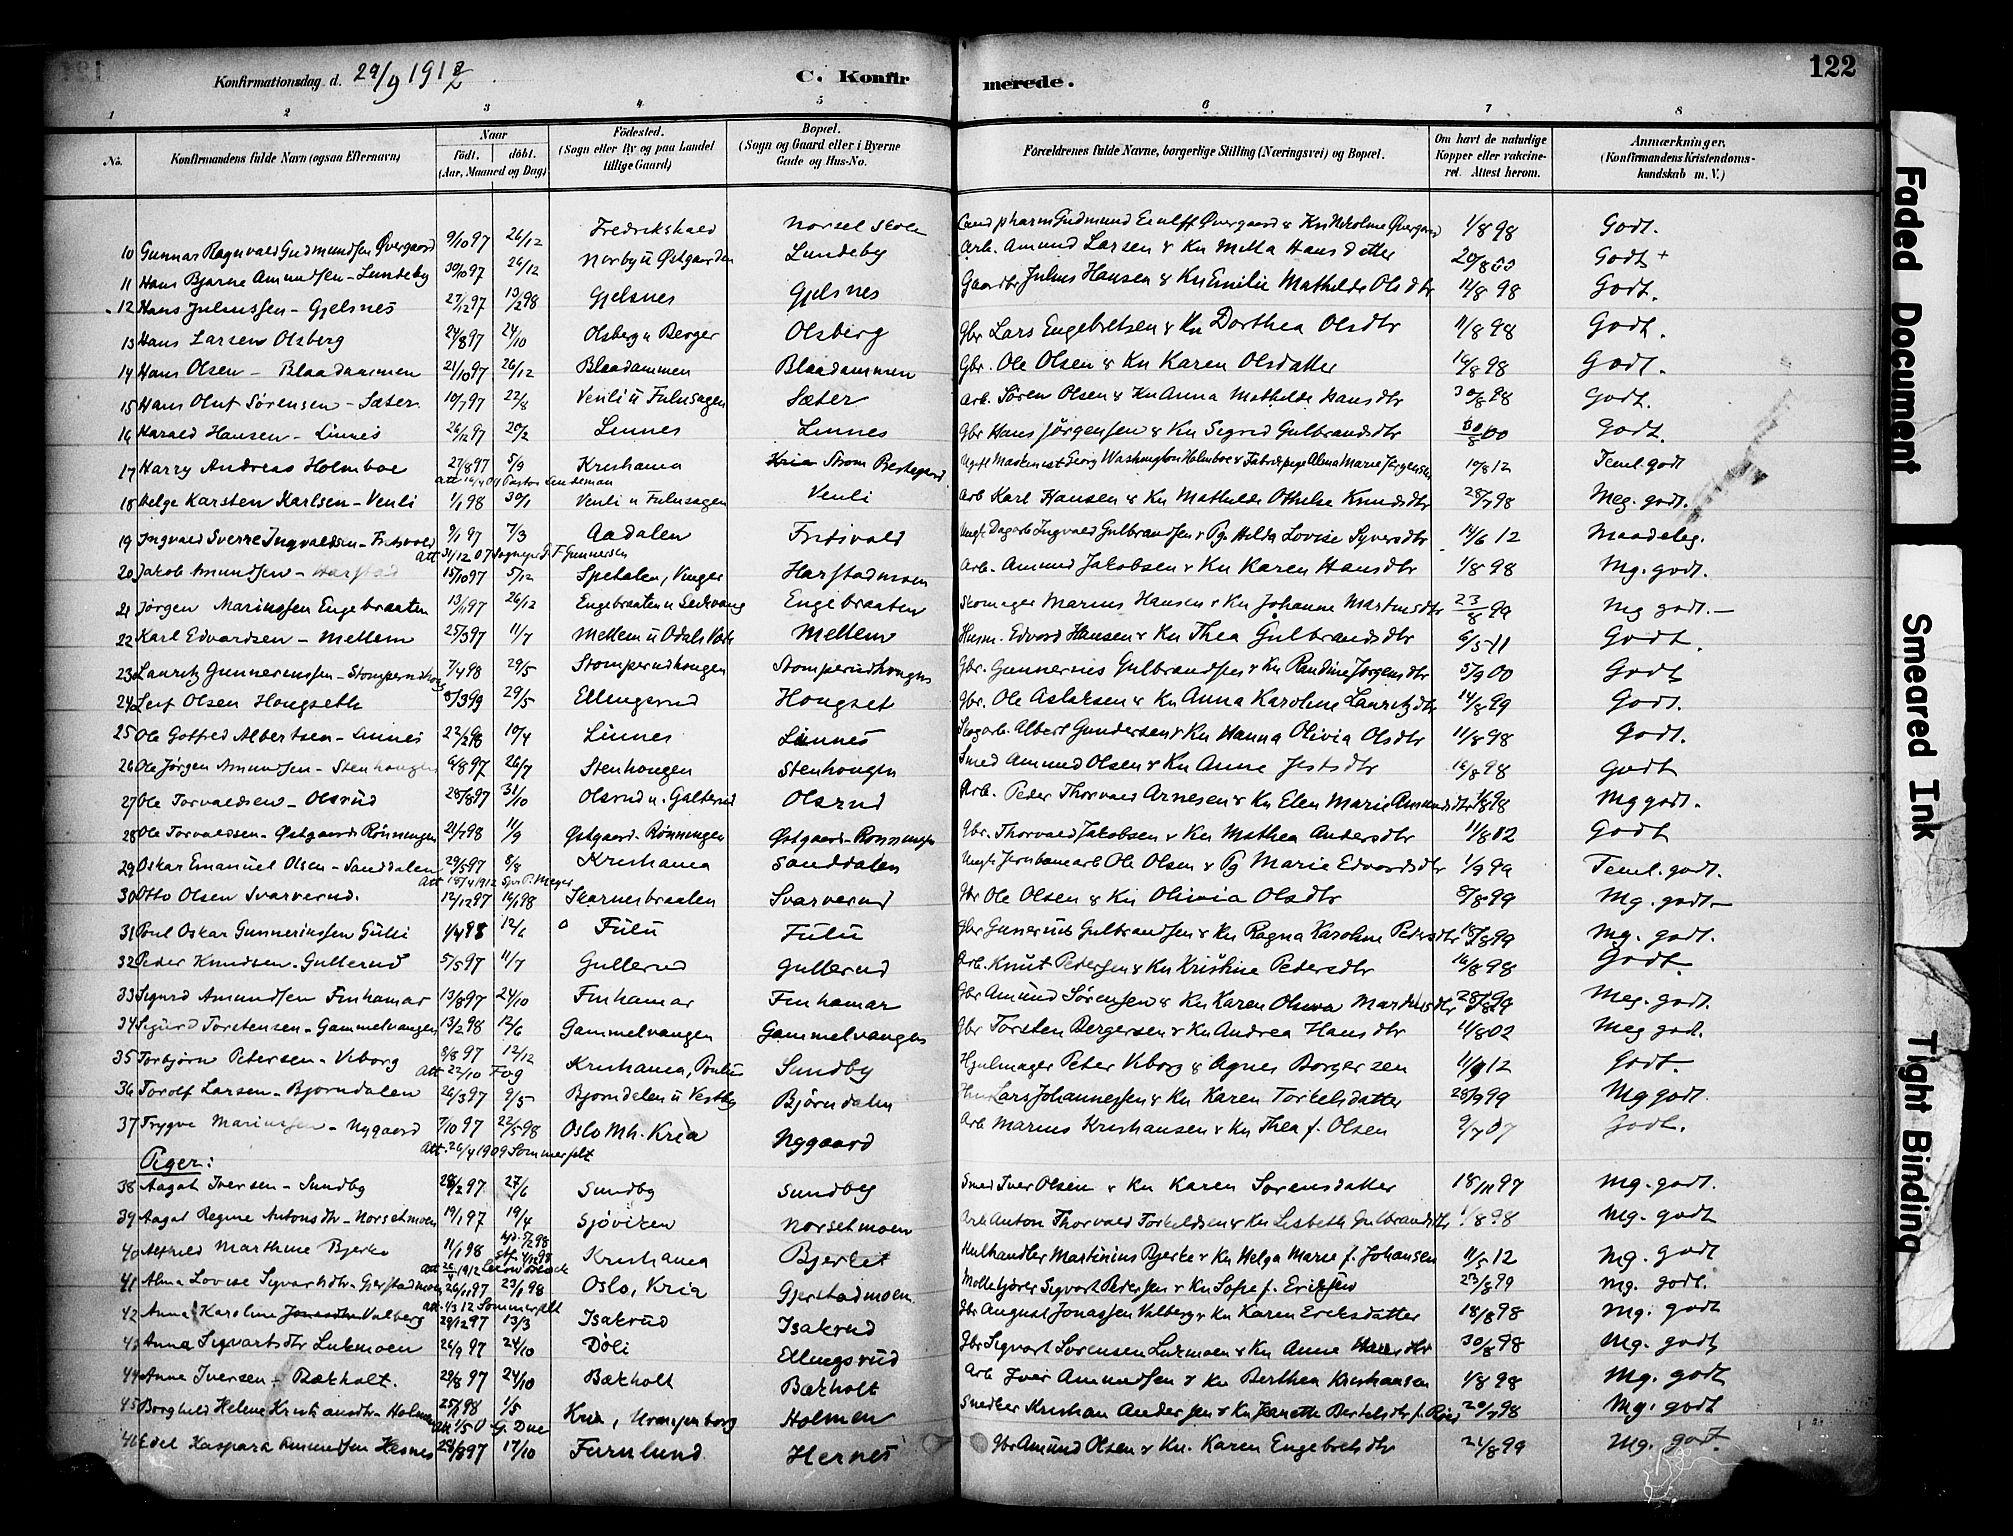 Konfirmationsdag d. 29/9 1912 C. Konfirmerede. 122
1 2 3 4 5 6 7 8
No. Konfirmandens fulde Navn (ogsaa Efternavn) Naar Födt. döbt. (Aar, Maaned og Dag) Födested. (Sogn eller By og paa Landet tillige Gaard) Bopæl. (Sogn og Gaard eller i Byerne Gade og Hus-No. Forældrenes fulde Navne, borgerlige Stilling (Næringsvei) og Bopæl. Om havt de naturlige Kopper eller vakcineret. Attest herom. Anmærkninger. (Konfirmandens Kristendomskundskab m. V.)
10 Gunnar Ragnvald Gudmundsen Øvergaard 9/10 97 26/12 Fredrikshald Norset Skole Cand pharm Gudmund Øvergaard & Kn Nikoline Øvergaard 1/8 98 Godt.
11 Hans Bjarne Amundsen - Lundeby 30/10 97 26/12 Norby u Østgaarden Lundeby Arb. Amund Larsen & Kn Mitta Hansdatter 20/8 00 Godt +
12 Hans Juliussen - Gjelsnes 27/12 97 13/2 98 Gjelsnes Gjelsnes Gaardbr Julius Hansen & Kn Emilie Mathilde Olsdtr 11/8 98 Godt.
13 Hans Larsen Olsberg 24/8 97 24/10 Olsberg u Berger Olsberg Gbr Lars Engebretsen & Kn Dorthea Olsdtr 11/8 98 Godt.
14 Hans Olsen - Blaadammen 21/10 97 26/12 Blaadammen Blaadammen Gbr. Ole Olsen & Kn Karen Olsdatter 16/8 98 Godt.
15 Hans Oluf Sörensen - Sæter 10/7 97 22/8 Venli u Fulusagen Sæter Arb. Sören Olsen & Kn Anna Mathilde Hansdtr 30/8 98 Godt.
16 Harald Hansen - Linnes 26/12 97 20/2 Linnes Linnes Gbr Hans Jörgensen & Kn Sigrid Gulbrandsdtr 30/8 00 Godt.
17 Harry Andreas Holmboe 27/8 97 5/9 Kristiania Kria Strøm Prestegaard Ugft Maskinist Georg Washington Holmboe & Fabrikpige Alma Marie Jörgensen 10/8 12 Teml. godt
Att 16/4 09 Pastor Lindeman
18 Helge Karsten Karlsen - Venli 1/1 98 30/1 Venli u Fulusagen Venli Arb Karl Hansen & Kn Mathilde Othelie Knudsdtr 28/7 98 Meg. godt.
19 Ingvald Sverre Ingvaldsen - Fritsvold 9/1 97 7/3 Aadalen Fritsvold Ungk Dagarb Ingvald Gulbrandsen & Pg. Hilda Lovise Syversdtr 14/6 12 Maadelig.
Att 31/12 07 Sogneprest F Gunnersen
20 Jakob Amundsen - Harstad 15/10 97 5/12 Spetalen, Vinger Harstadmoen Arb. Amund Jakobsen & Kn Karen Hansdtr 1/8 98 Mg. godt.
21 Jörgen Mariussen Engebraaten 13/11 97 26/12 Engebraaten u Seckvang Engebraaten Skomager Marius Hansen & Kn Johanne Martinsdtr 23/8 99 Mg godt. -
22 Karl Edvardsen - Mellem 25/3 97 11/7 Mellem u Odals Værk Mellem Husm. Edvard Hansen & Kn Thea Gulbrandsdtr 6/5 11 Godt.
23 Lauritz Gunneriussen - Stomperudhaug 7/4 98 29/5 Stomperudhougen Stomperudhougen Gbr. Gunnerius Gulbrandsen & Kn Randine Jörgensdtr 5/9 00 Godt
24 Leif Olsen Hougseth 8/3 99 29/5 Ellingsrud Hougset Gbr. Ole Aslaksen & Kn Anna Karoline Lauritzdtr 14/8 99 Godt.
25 Ole Gotfred Albertsen - Linnes 22/2 98 10/4 Linnes Linnes Skogarb. Albert Gundersen & Kn Hanna Olivia Olsdtr 11/8 98 Godt.
26 Ole Jörgen Amundsen - Stenhougen 6/8 97 26/7 Stenhougen Stenhougen Smed Amund Olsen & Kn Anne Jensdtr 16/8 98 Godt
27 Ole Torvaldsen - Olsrud 28/8 97 31/10 Olsrud u. Galterud Olsrud Arb. Peder Thorvald Arnesen & Kn Elen Marie Amundsdtr 1/8 98 Mg godt.
28 Ole Torvaldsen - Østgaards Rönningen 21/4 98 11/9 Østgaards-Rönningen Østgaards-Rönningen Gbr. Thorvald Jakobsen & Kn Mathea Andersdtr 11/8 02 Godt
29 Oskar Emanuel Olsen - Sanddalen 29/5 97 8/8 Kristiania Sanddalen Ungk Jernbanearb Ole Olsen & Pg Marie Edvardsdtr 1/9 99 Teml. godt.
Att 18/4 1912 Spr P. Meyer
30 Otto Olsen Svarverud. 12/12 97 16/1 98 Skarnesbraaten Svarverud Gbr Ole Olsen & Kn Olivia Olsdtr 8/8 99 Mg. godt -
31 Poul Oskar Gunneriussen Gulli 1/4 98 12/6 Fulu Fulu Gbr Gunerius Gulbrandsen & Kn Ragna Karoline Pedersdtr 18/8 99 Mg. godt.
32 Peder Knudsen - Gullerud 5/5 97 11/7 Gullerud Gullerud Arb. Knut Pedersen & Kn Kristine Pedersdtr 16/8 98 Godt.
33 Sigurd Amundsen Finhamar 13/8 97 24/10 Finhamar Finhamar Gbr Amund Sörensen & Kn Karen Oliva Martinusdtr 28/8 99 Meg. godt.
34 Sigurd Torstensen - Gammelvangen 13/2 98 12/6 Gammelvangen Gammelvangen Gbr Torsten Bergersen & Kn Andrea Hansdtr 11/8 02 Meg godt.
35 Torbjörn Petersen - Viborg 9/8 97 12/12 Kristiania, Paulus Sundby Hjulmager Peter Viborg & Agnes Borgersen 11/9 12 Godt.
Att 22/10 Fog
36 Torolf Larsen - Bjorndalen 26/3 97 9/5 Bjorndalen u Vestby Björndalen Hm Lars Johannessen & Kn Karen Torkelsdatter 28/9 99 Mg godt.
37 Trygve Mariussen - Nygaard 7/10 97 22/5 98 Oslo Mh. Kria Nygaard Arb Marius Kristiansen & Kn Thea f. Olsen 9/7 07 Godt.
Att. 26/4 1909 Sommerfelt
Piger:
38 Aagot Iversen - Sundby 28/2 97 27/6 Sundby Sundby Smed Iver Olsen & Kn Karen Sorensdatter 18/11 97 Mg. godt.
39 Aagot Regine Antonsdtr - Norsetmoen 19/1 97 19/4 Sjöviken Norsetmoen Arb Anton Thorvald Torkildsen & Kn Lisbeth Gulbrandsdtr 1/8 98 Mg. godt
40 Alfhild Marthine Bjerke 11/1 98 hjd. 5/2 98 Stf. 4/12 98 Kristiania Bjerket Kulhandler Martinius Bjerke & Kn Helga Marie f. Johansen 11/5 12 Mg. godt
41 Alma Lovise Sigvartsdtr - Gjerstadmoen 26/11 97 23/1 98 Oslo, Kria Gjerstadmoen Mollekjører Sigvart Pedersen & Kn Sofie f. Eriksen 23/8 99 Mg. godt.
att. 1/3 12 Sommerfelt
42 Anna Karoline Jonasdtr Valberg 29/12 97 13/3 Isakrud Isakrud Gbr August Jonassen Valberg & Kn Karen Eriksdatter 18/8 98 Mg. godt
43 Anna Sigvartsdtr Lukmoen 26/9 97 24/10 Döli Ellingsrud Gbr Sigvart Sorensen Lukmoen & Kn Anne Hansdtr 30/8 98 Mg. godt
44 Anne Iversen - Bækholt. 29/8 97 24/10 Bækholt Bækholt Arb Iver Amundsen & Kn Berthea Kristiansen 1/8 98 Mg. godt
45 Borghild Helene Kristiansdtr - Holmen 25/1 98 1/5 Kria, Uranienborg Holmen Snedker Kristian Andersen & Kn Jeanette Bertelsdtr 20/7 98 Mg. godt
46 Edel Kaspara Amundsen Hesnes 28/8 97 17/10 Furulund Hernes Gbr Amund Olsen & Kn. Karen Engebretsdtr 21/8 99 Mg. godt.
Faded Document
Smeared Ink
Tight Binding